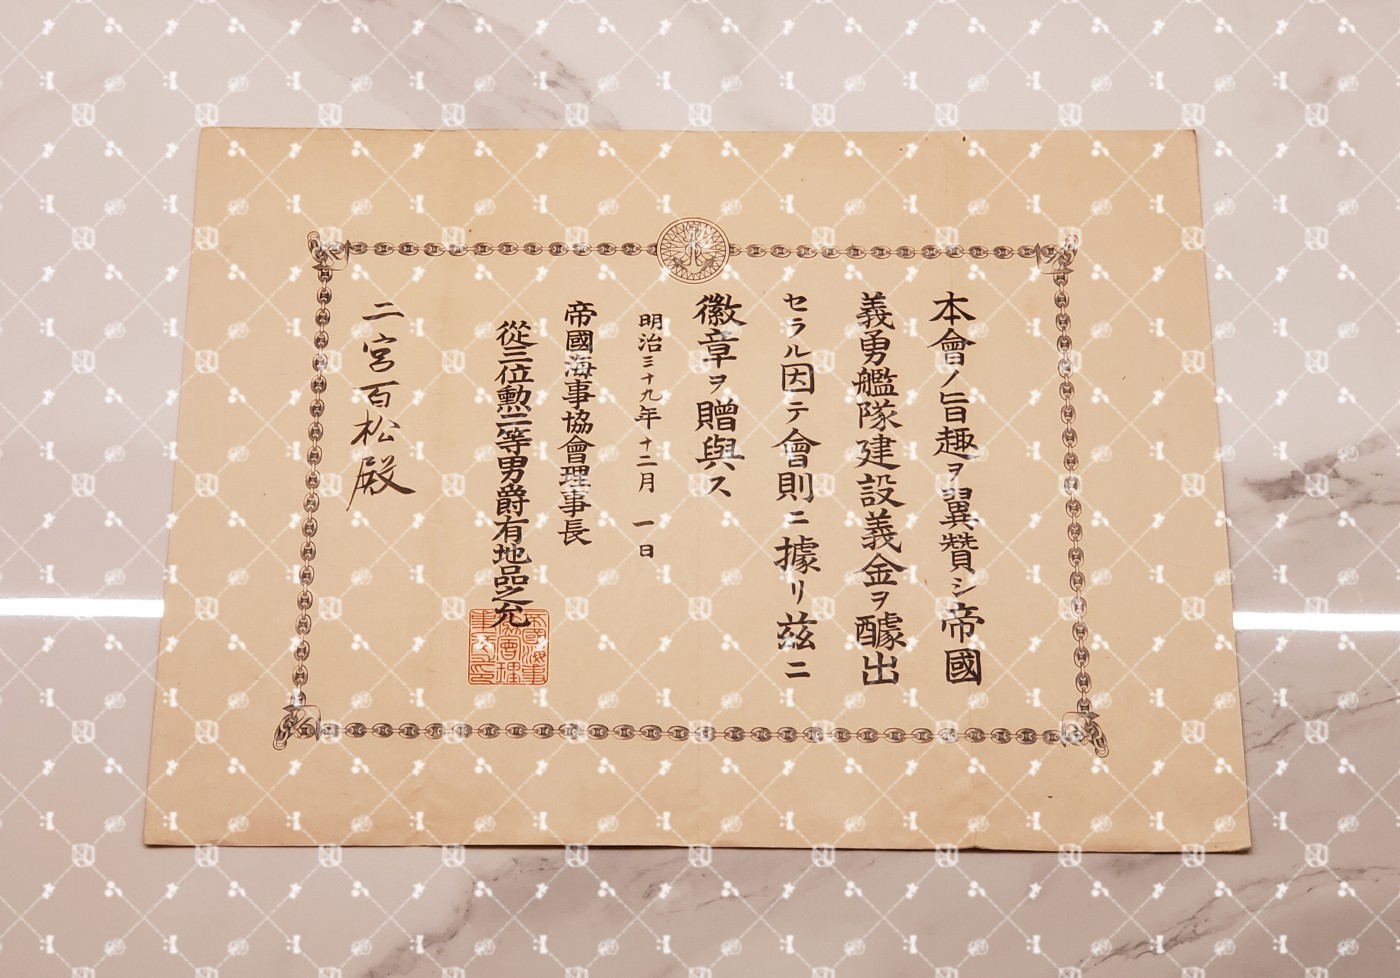 本會ノ旨趣ヲ翼贊シ帝國
義勇艦隊建設義金ヲ醵出
セラル因テ會則ニ據リ茲ニ
徽章ヲ贈與ス
明治三十九年十二月一日
帝國海事協會理事長
從三位勲二等男爵有地品之允
帝國海事協會理事長之印
二宮百松殿